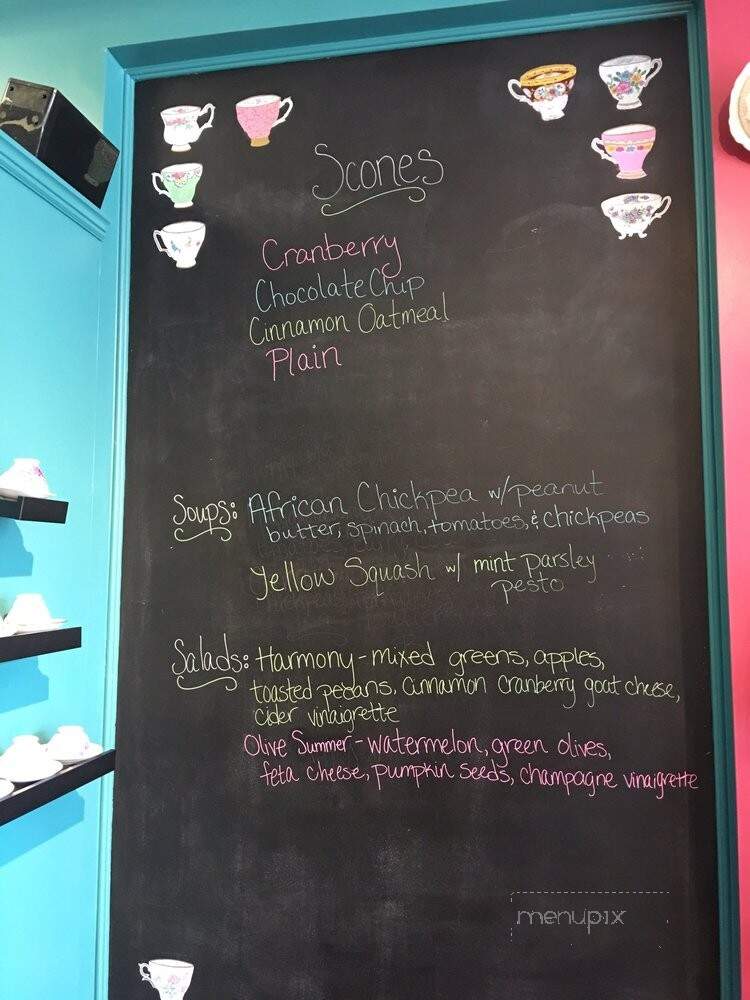 Scones
Cranberry
Chocolate Chip
Cinnamon Oatmeal
Plain
Soups: African Chickpea w/peanut
butter, spinach, tomatoes, & chickpeas
Yellow Squash w/ mint parsley
pesto
Salads: Harmony - mixed greens, apples,
toasted pecans, cinnamon cranberry goat cheese,
cider vinaigrette
Olive Summer - watermelon, green olives,
feta cheese, pumpkin seeds, champagne vinaigrette
menupix